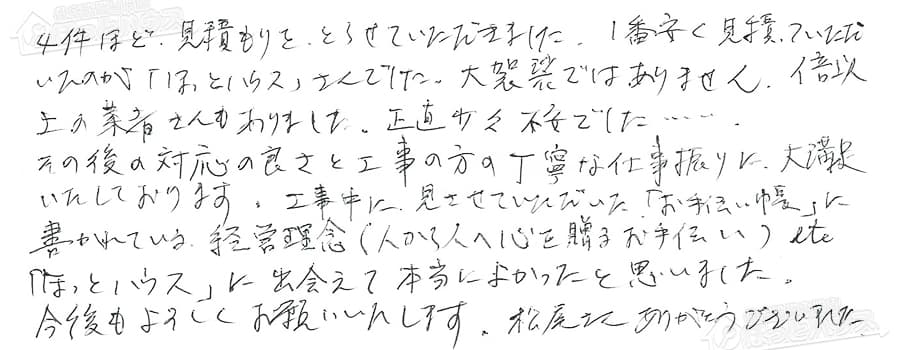 4件ほど、見積もりを、とらせていただきました。1番安く見積っていただ
いたのが「ほっとハウス」さんでした。大袈裟ではありません。倍以
上の業者さんもありました。正直少々不安でした……。
その後の対応の良さと工事の方の丁寧な仕事振りに、大満足
いたしております。工事中に、見させていただいた「お手伝い帳」に
書かれている、経営理念(人から人へ心を贈るお手伝い)etc
「ほっとハウス」に出会えて本当によかったと思いました。
今後もよろしくお願いいたします。松尾さん ありがとうございました